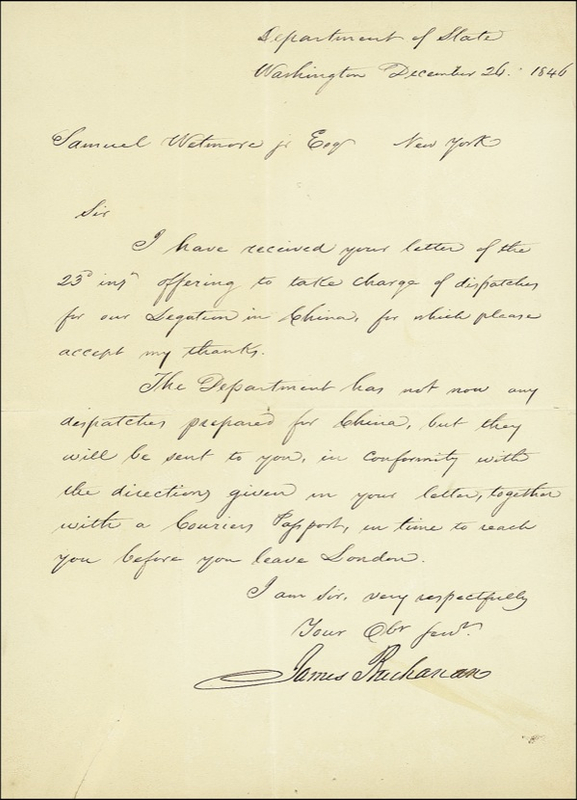 Department of State
Washington December 26. 1846
Samuel Wetmore jr Esqr New York
Sir
I have received your letter of the
23d inst offering to take charge of dispatches
for our Legation in China, for which please
accept my thanks.
The Department has not now any
dispatches prepared for China, but they
will be sent to you, in conformity with
the directions given in your letter, together
with a Couriers Passport, in time to reach
you before you leave London.
I am Sir, very respectfully
Your Obt Servt.
James Buchanan